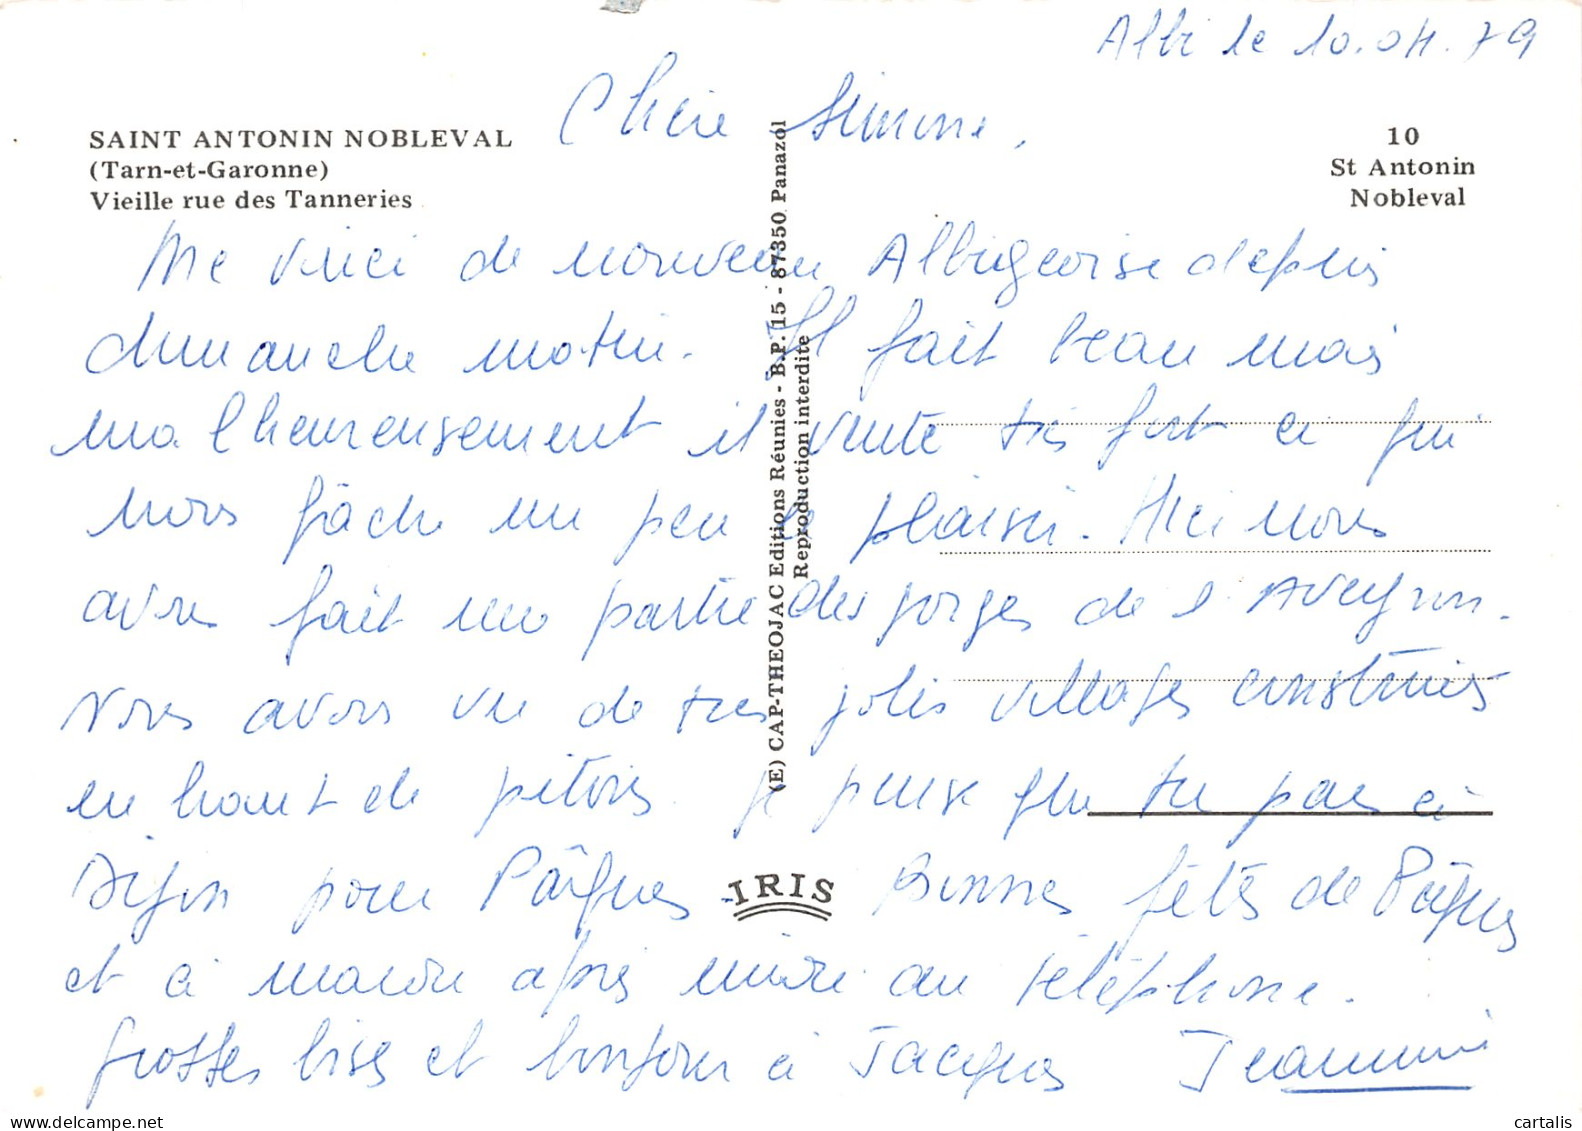 Albi le 10.04.79
Chère Simone,
SAINT ANTONIN NOBLEVAL
(Tarn-et-Garonne)
Vieille rue des Tanneries
10
St Antonin
Nobleval
(E) CAP-THEOJAC Editions Réunies - B.P. 15 - 87350 Panazol
Reproduction interdite
Me voici de nouveau Albigeoise depuis
dimanche matin. Il fait beau mais
malheureusement il vente très fort ce qui
nous gâche un peu le plaisir. Hier nous
avons fait une partie des gorges de l'Aveyron.
Nous avons vu de très jolis villages construits
en haut de pitons. Je pense que tu pars à
Dijon pour Pâques. Bonnes fêtes de Pâques
et à mardi après midi au téléphone.
Grosses bises et bonjour à Jacques Jeannine
IRIS
cartalis
www.delcampe.net